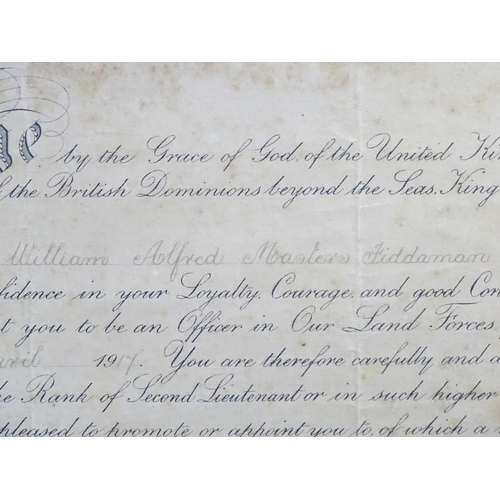 by the Grace of God, of the United Kin
the British Dominions beyond the Seas, King
William Alfred Masters Fiddaman
fidence in your Loyalty, Courage, and good Con
t you to be an Officer in Our Land Forces
April 1917. You are therefore carefully and d
he Rank of Second Lieutenant or in such higher
pleased to promote or appoint you to, of which a